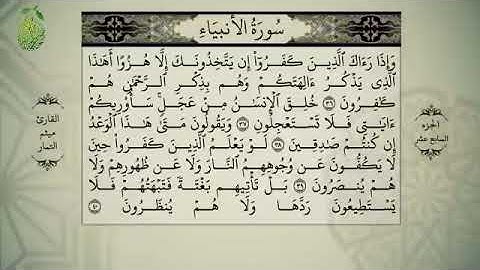 سُورَةُ الْأَنبِيَاءِ
وَإِذَا رَءَاكَ ٱلَّذِينَ كَفَرُوٓا۟ إِن يَتَّخِذُونَكَ إِلَّا هُزُوًا أَهَٰذَا
ٱلَّذِى يَذْكُرُ ءَالِهَتَكُمْ وَهُم بِذِكْرِ ٱلرَّحْمَٰنِ هُمْ
كَٰفِرُونَ ٣٦ خُلِقَ ٱلْإِنسَٰنُ مِنْ عَجَلٍ سَأُو۟رِيكُمْ
ءَايَٰتِى فَلَا تَسْتَعْجِلُونِ ٣٧ وَيَقُولُونَ مَتَىٰ هَٰذَا ٱلْوَعْدُ
إِن كُنتُمْ صَٰدِقِينَ ٣٨ لَوْ يَعْلَمُ ٱلَّذِينَ كَفَرُوا۟ حِينَ
لَا يَكُفُّونَ عَن وُجُوهِهِمُ ٱلنَّارَ وَلَا عَن ظُهُورِهِمْ وَلَا
هُمْ يُنصَرُونَ ٣٩ بَلْ تَأْتِيهِم بَغْتَةً فَتَبْهَتُهُمْ فَلَا
يَسْتَطِيعُونَ رَدَّهَا وَلَا هُمْ يُنظَرُونَ ٤٠
الجزء
السابع عشر
القارئ
ميثم
التمار